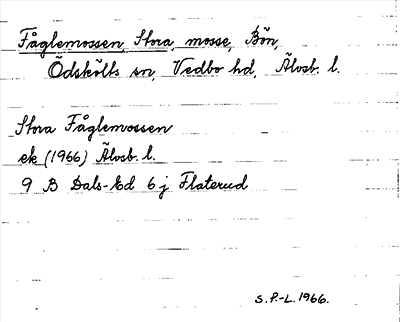 Fåglemossen, Stora, mosse, Bön,
Ödskölts sn, Vedbo hd, Älvsb. l.
Stora Fåglemossen
ek (1966) Älvsb. l.
9 B Dals-Ed 6 j Flaterud
S.P.-L. 1966.